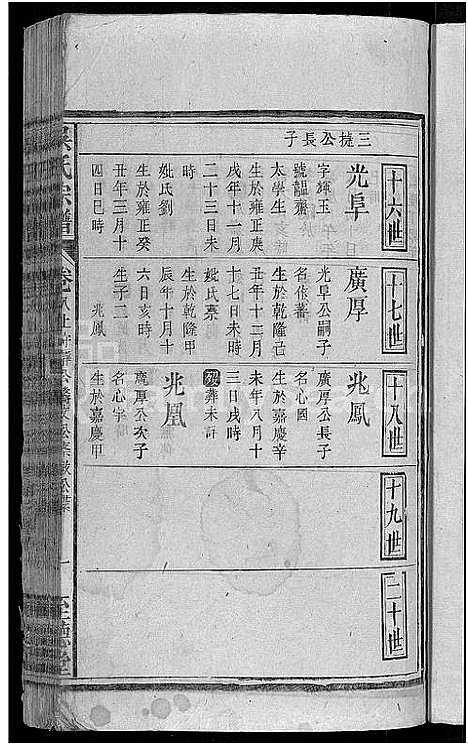 三撻公長子
十六世
光阜
字輝玉
號韞齋
太學生
生於雍正庚
戌年十一月
二十三日未
時
妣氏劉
生於雍正癸
丑年三月十
四日巳時
十七世
廣厚
光阜公嗣子
名作蕃
生於乾隆己
丑年十二月
十七日未時
妣氏蔡
生於乾隆甲
辰年十月十
六日亥時
生子二
兆鳳
十八世
兆鳳
廣厚公長子
名心國
生於嘉慶辛
未年八月十
三日戌時
歿葬未詳
兆凰
廣厚公次子
名心宇
生於嘉慶甲
十九世
二十世
吳氏宗譜
卷八
至德堂